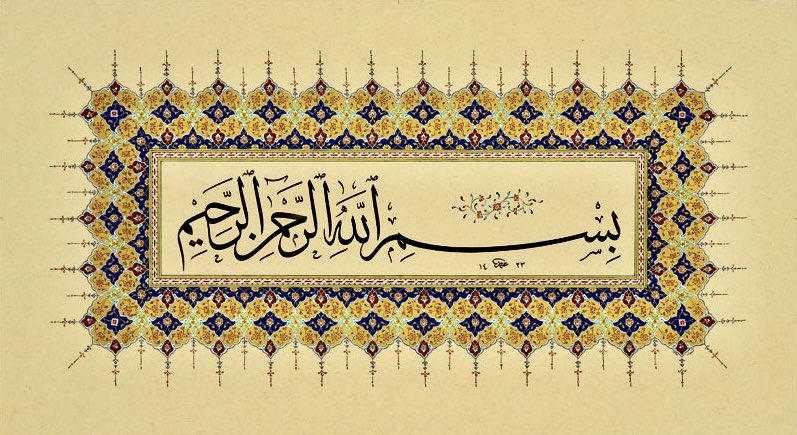 بِسْمِ اللّٰهِ الرَّحْمٰنِ الرَّحِيْمِ
١٤ ٢٣